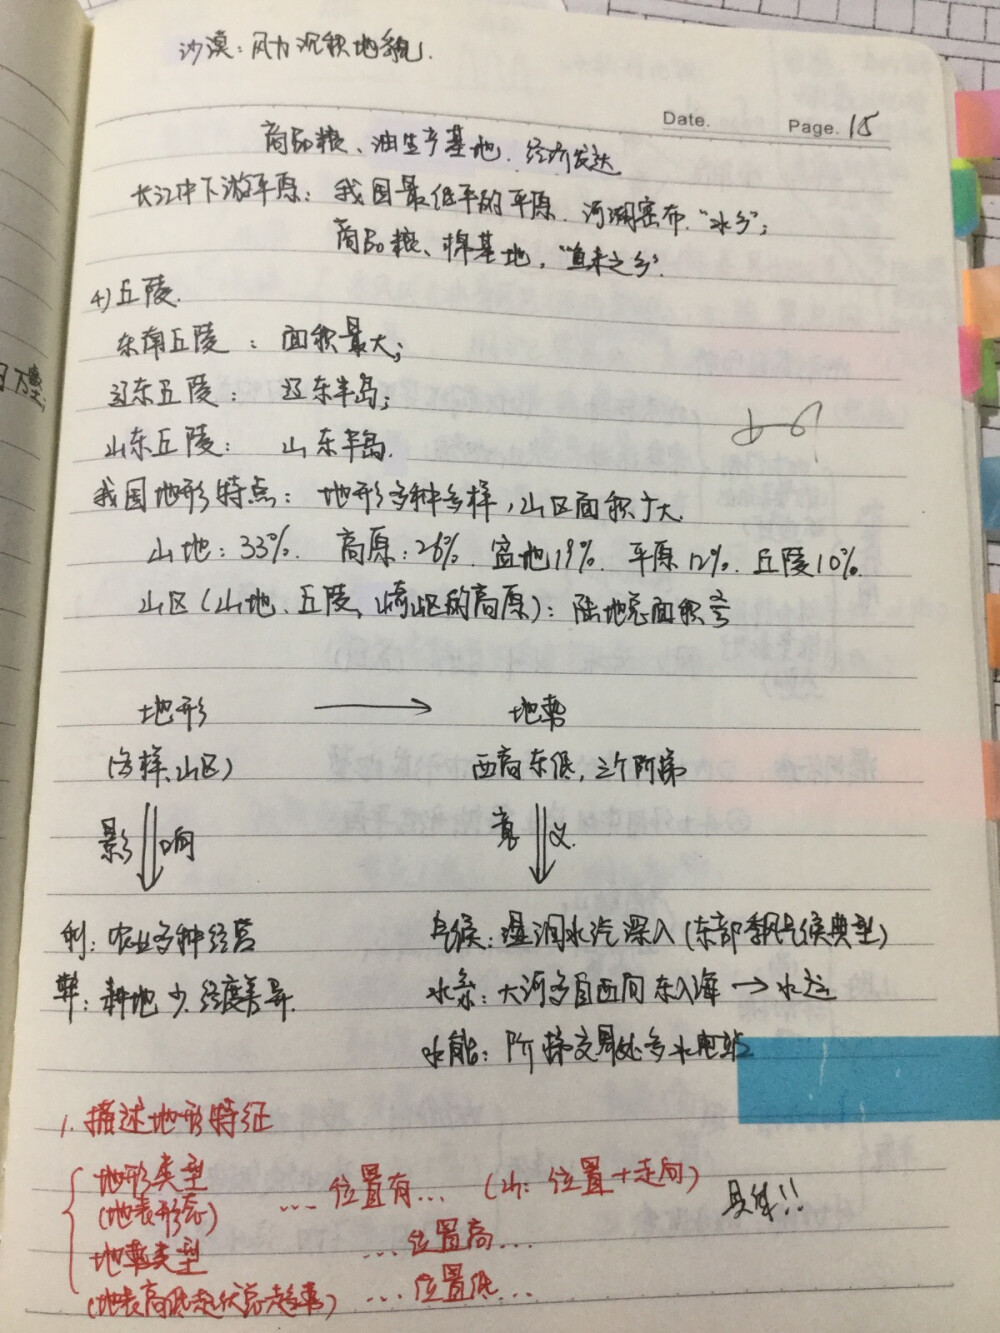 沙漠：风力沉积地貌.
Date.
Page. 15
商品粮、油生产基地. 经济发达
长江中下游平原：我国最低平的平原. 河湖密布. "水乡"；
商品粮、棉基地, "鱼米之乡".
4) 丘陵.
东南丘陵：面积最大；
辽东丘陵：辽东半岛；
山东丘陵：山东半岛.
我国地形特点：地形多种多样，山区面积广大.
山地：33%. 高原：26%. 盆地19%. 平原12%. 丘陵10%.
山区（山地、丘陵、崎岖的高原）：陆地总面积2/3
地形 → 地势
(多样, 山区) 西高东低, 三个阶梯
影响 意义
利：农业多种经营 气候：湿润水汽深入（东部季风气候典型）
弊：耕地少. 经度差异. 水系：大河多自西向东入海 → 水运
水能：阶梯交界处多水电站
1. 描述地形特征
地形类型
(地表形态) ...位置有... (山：位置+走向) 具体!!
地势类型 ...位置高...
(地表高低起伏总趋势) ...位置低...